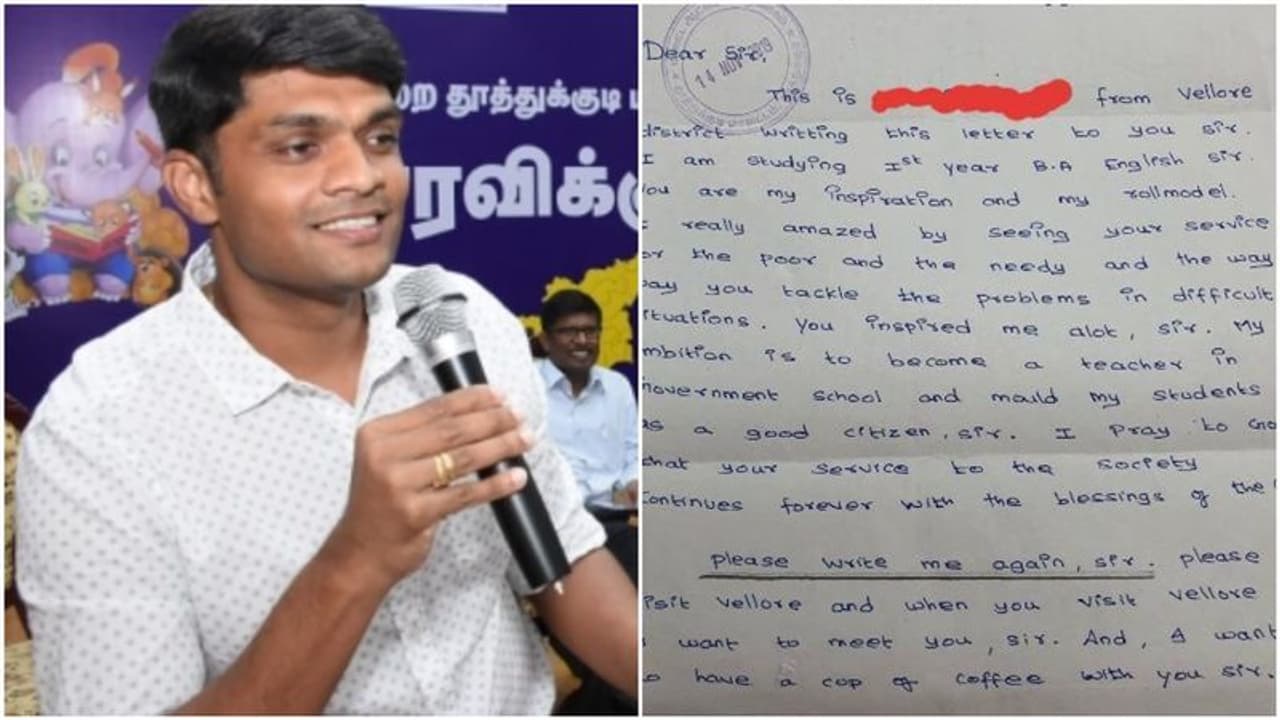 தூத்துக்குடி
ரவிக்கு
14 NOV 2019
Dear Sir,
This is from Vellore
district writting this letter to you sir.
I am studying Ist year B.A English sir.
you are my inspiration and my rollmodel.
I really amazed by seeing your service
or the poor and the needy and the way
way you tackle the problems in difficult
ituations. You inspired me alot, sir. My
mbition is to become a teacher in
overnment school and mould my students
as a good citizen, sir. I pray to Go
that your service to the society
continues forever with the blessings of the
please write me again, sir. please
isit Vellore and when you visit Vellore
I want to meet you, sir. And, I want
to have a cop of coffee with you sir.